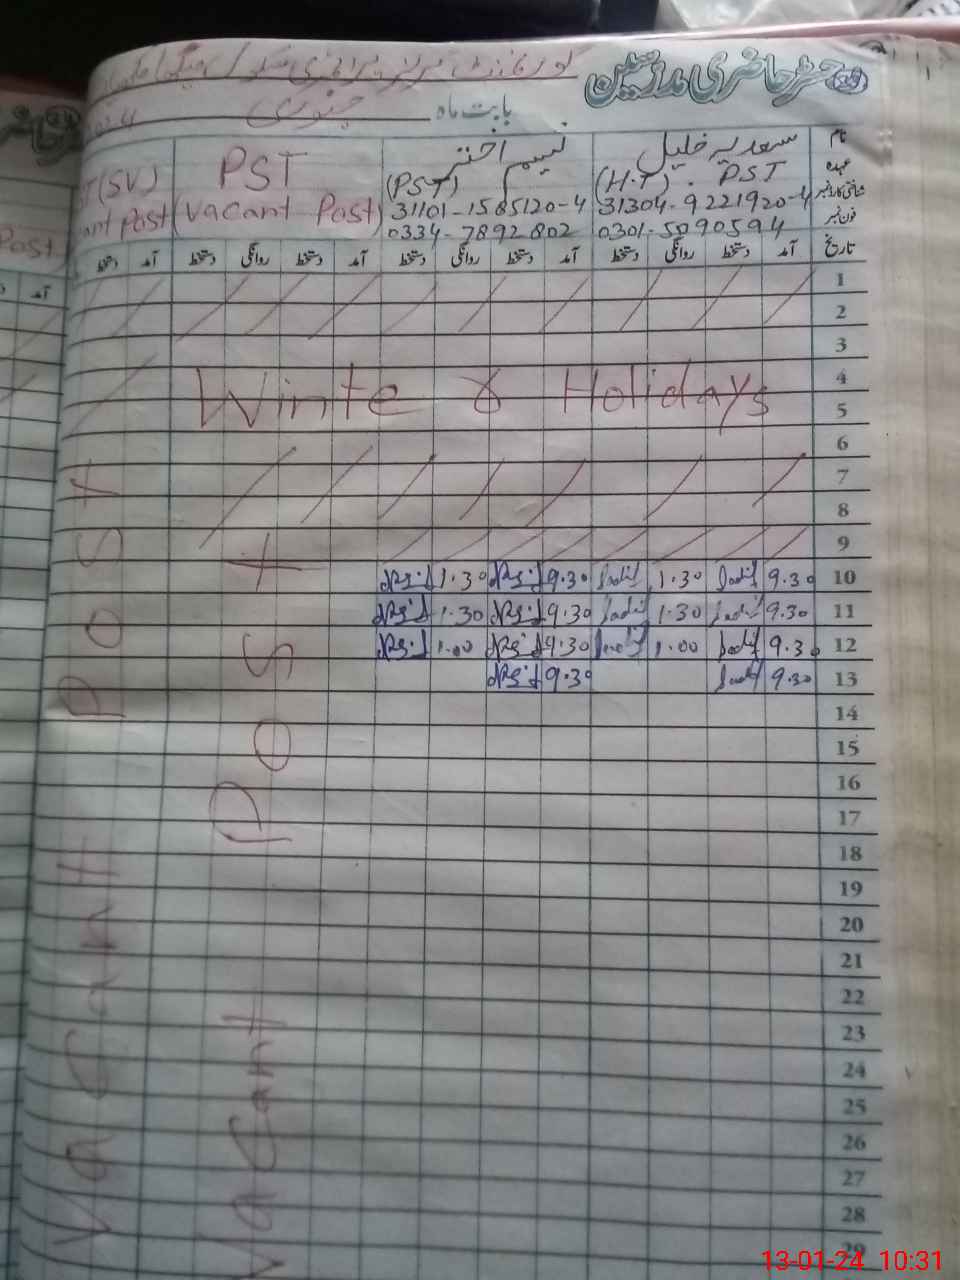 رجسٹر حاضری مدرسین
گورنمنٹ گرلز پرائمری سکول
بابت ماہ جنوری
نام
سعدیہ خلیل
نسیم اختر
عہدہ
(H.T) . PST
(PST)
PST
(SV)
شناختی کارڈ نمبر
31304-9221920-4
31101-1585120-4
(Vacant Post)
ant Post
Post)
فون نمبر
0301-5090594
0334-7892802
تاریخ آمد دستخط روانگی دستخط آمد دستخط روانگی دستخط آمد دستخط روانگی دستخط آمد دستخط
آمد
1
2
3
4
Winter Holidays
5
6
7
8
9
10 9.30 1.30 9.30 1.30
11 9.30 1.30 9.30 1.30
12 9.30 1.00 9.30 1.00
13 9.30 9.30
14
15
16
17
18
19
20
21
22
23
24
25
26
27
28
29
Vacant Post
Vacant Post
13-01-24 10:31